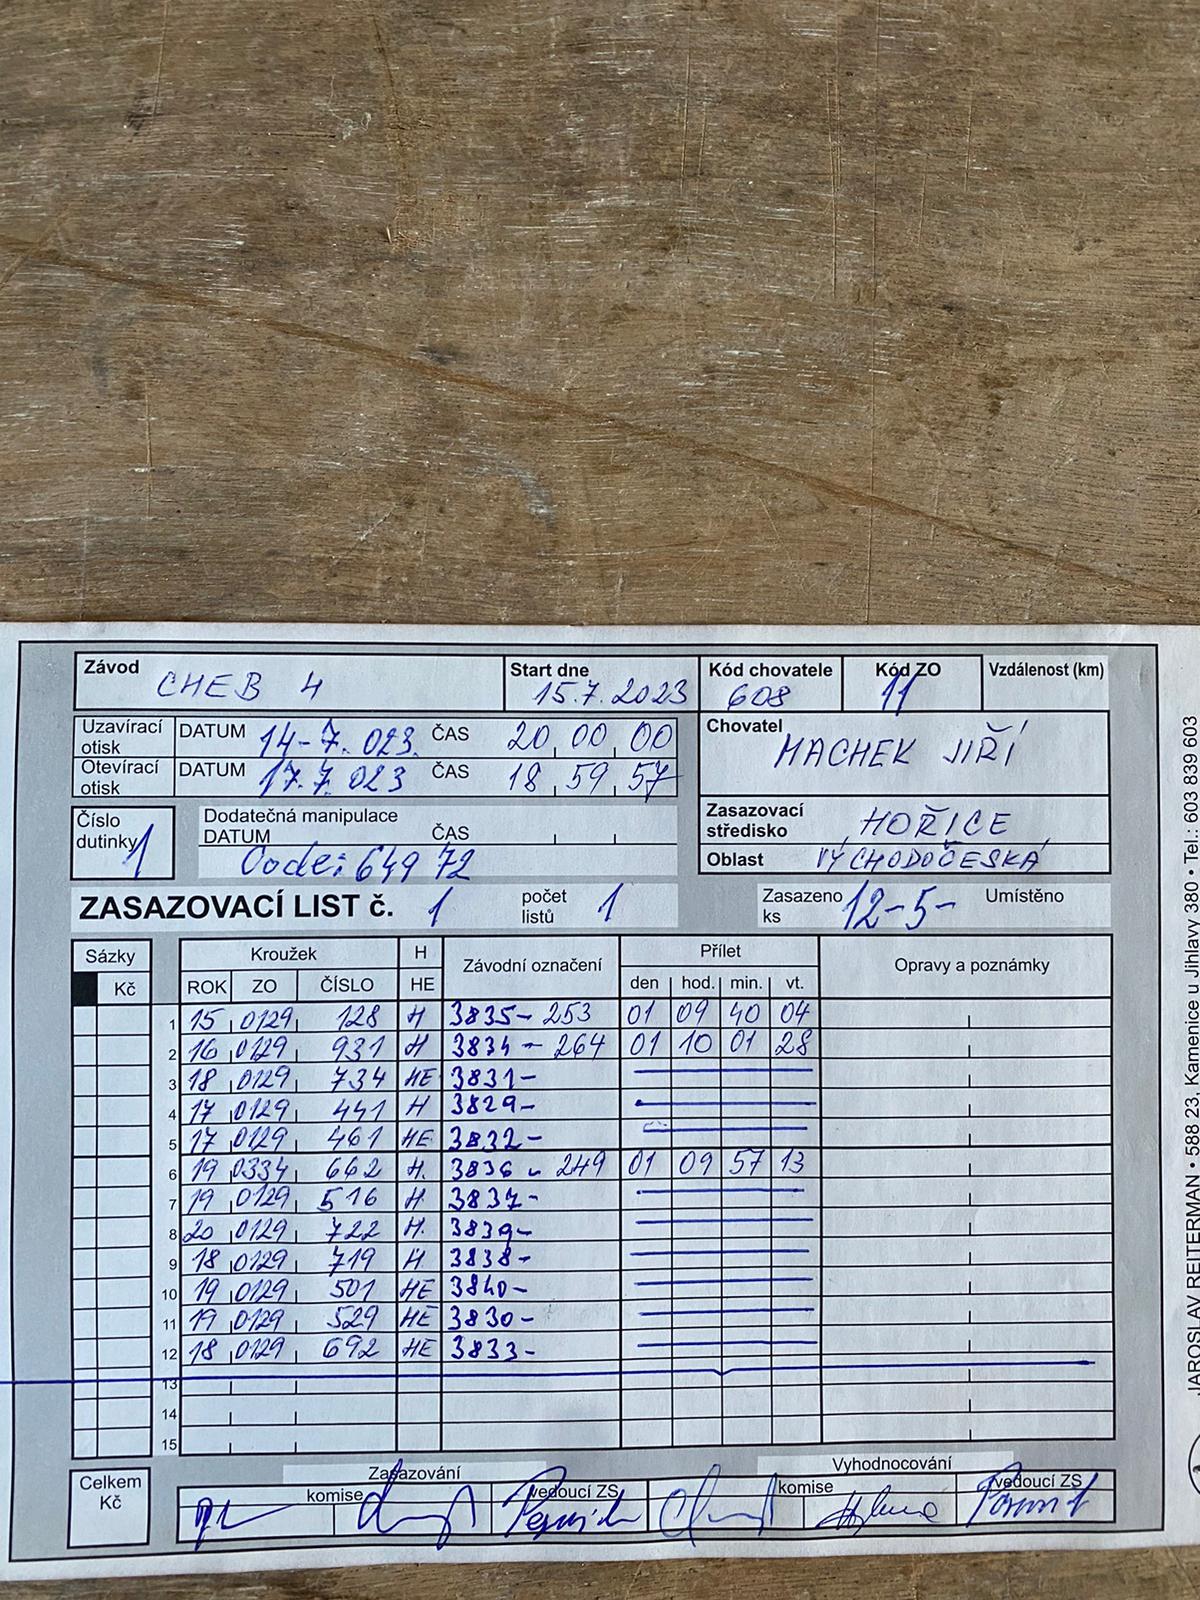 Závod CHEB 4 Start dne 15.7.2023 Kód chovatele 608 Kód ZO 11 Vzdálenost (km)
Uzavírací otisk DATUM 14-7. 023. ČAS 20 00 00
Otevírací otisk DATUM 17.7. 023 ČAS 18 59 57
Chovatel MACHEK JIŘÍ
Číslo dutinky 1
Dodatečná manipulace
DATUM ČAS
Code: 649 72
Zasazovací středisko HOŘICE
Oblast VÝCHODOČESKÁ
ZASAZOVACÍ LIST č. 1 počet listů 1 Zasazeno ks 12-5- Umístěno
Sázky Kroužek H Závodní označení Přílet Opravy a poznámky
Kč ROK ZO ČÍSLO HE den hod. min. vt.
1 15 0129 128 H 3835- 253 01 09 40 04
2 16 0129 931 H 3834- 264 01 10 01 28
3 18 0129 734 HE 3831-
4 17 0129 441 H 3829-
5 17 0129 461 HE 3832-
6 19 0334 662 H. 3836- 249 01 09 57 13
7 19 0129 516 H 3837-
8 20 0129 722 H. 3839-
9 18 0129 719 H 3838-
10 19 0129 501 HE 3840-
11 19 0129 529 HE 3830-
12 18 0129 692 HE 3833-
13
14
15
Celkem Kč
Zasazování Vyhodnocování
komise vedoucí ZS komise vedoucí ZS
JAROSLAV REITERMAN • 588 23, Kamenice u Jihlavy 380 • Tel.: 603 839 603